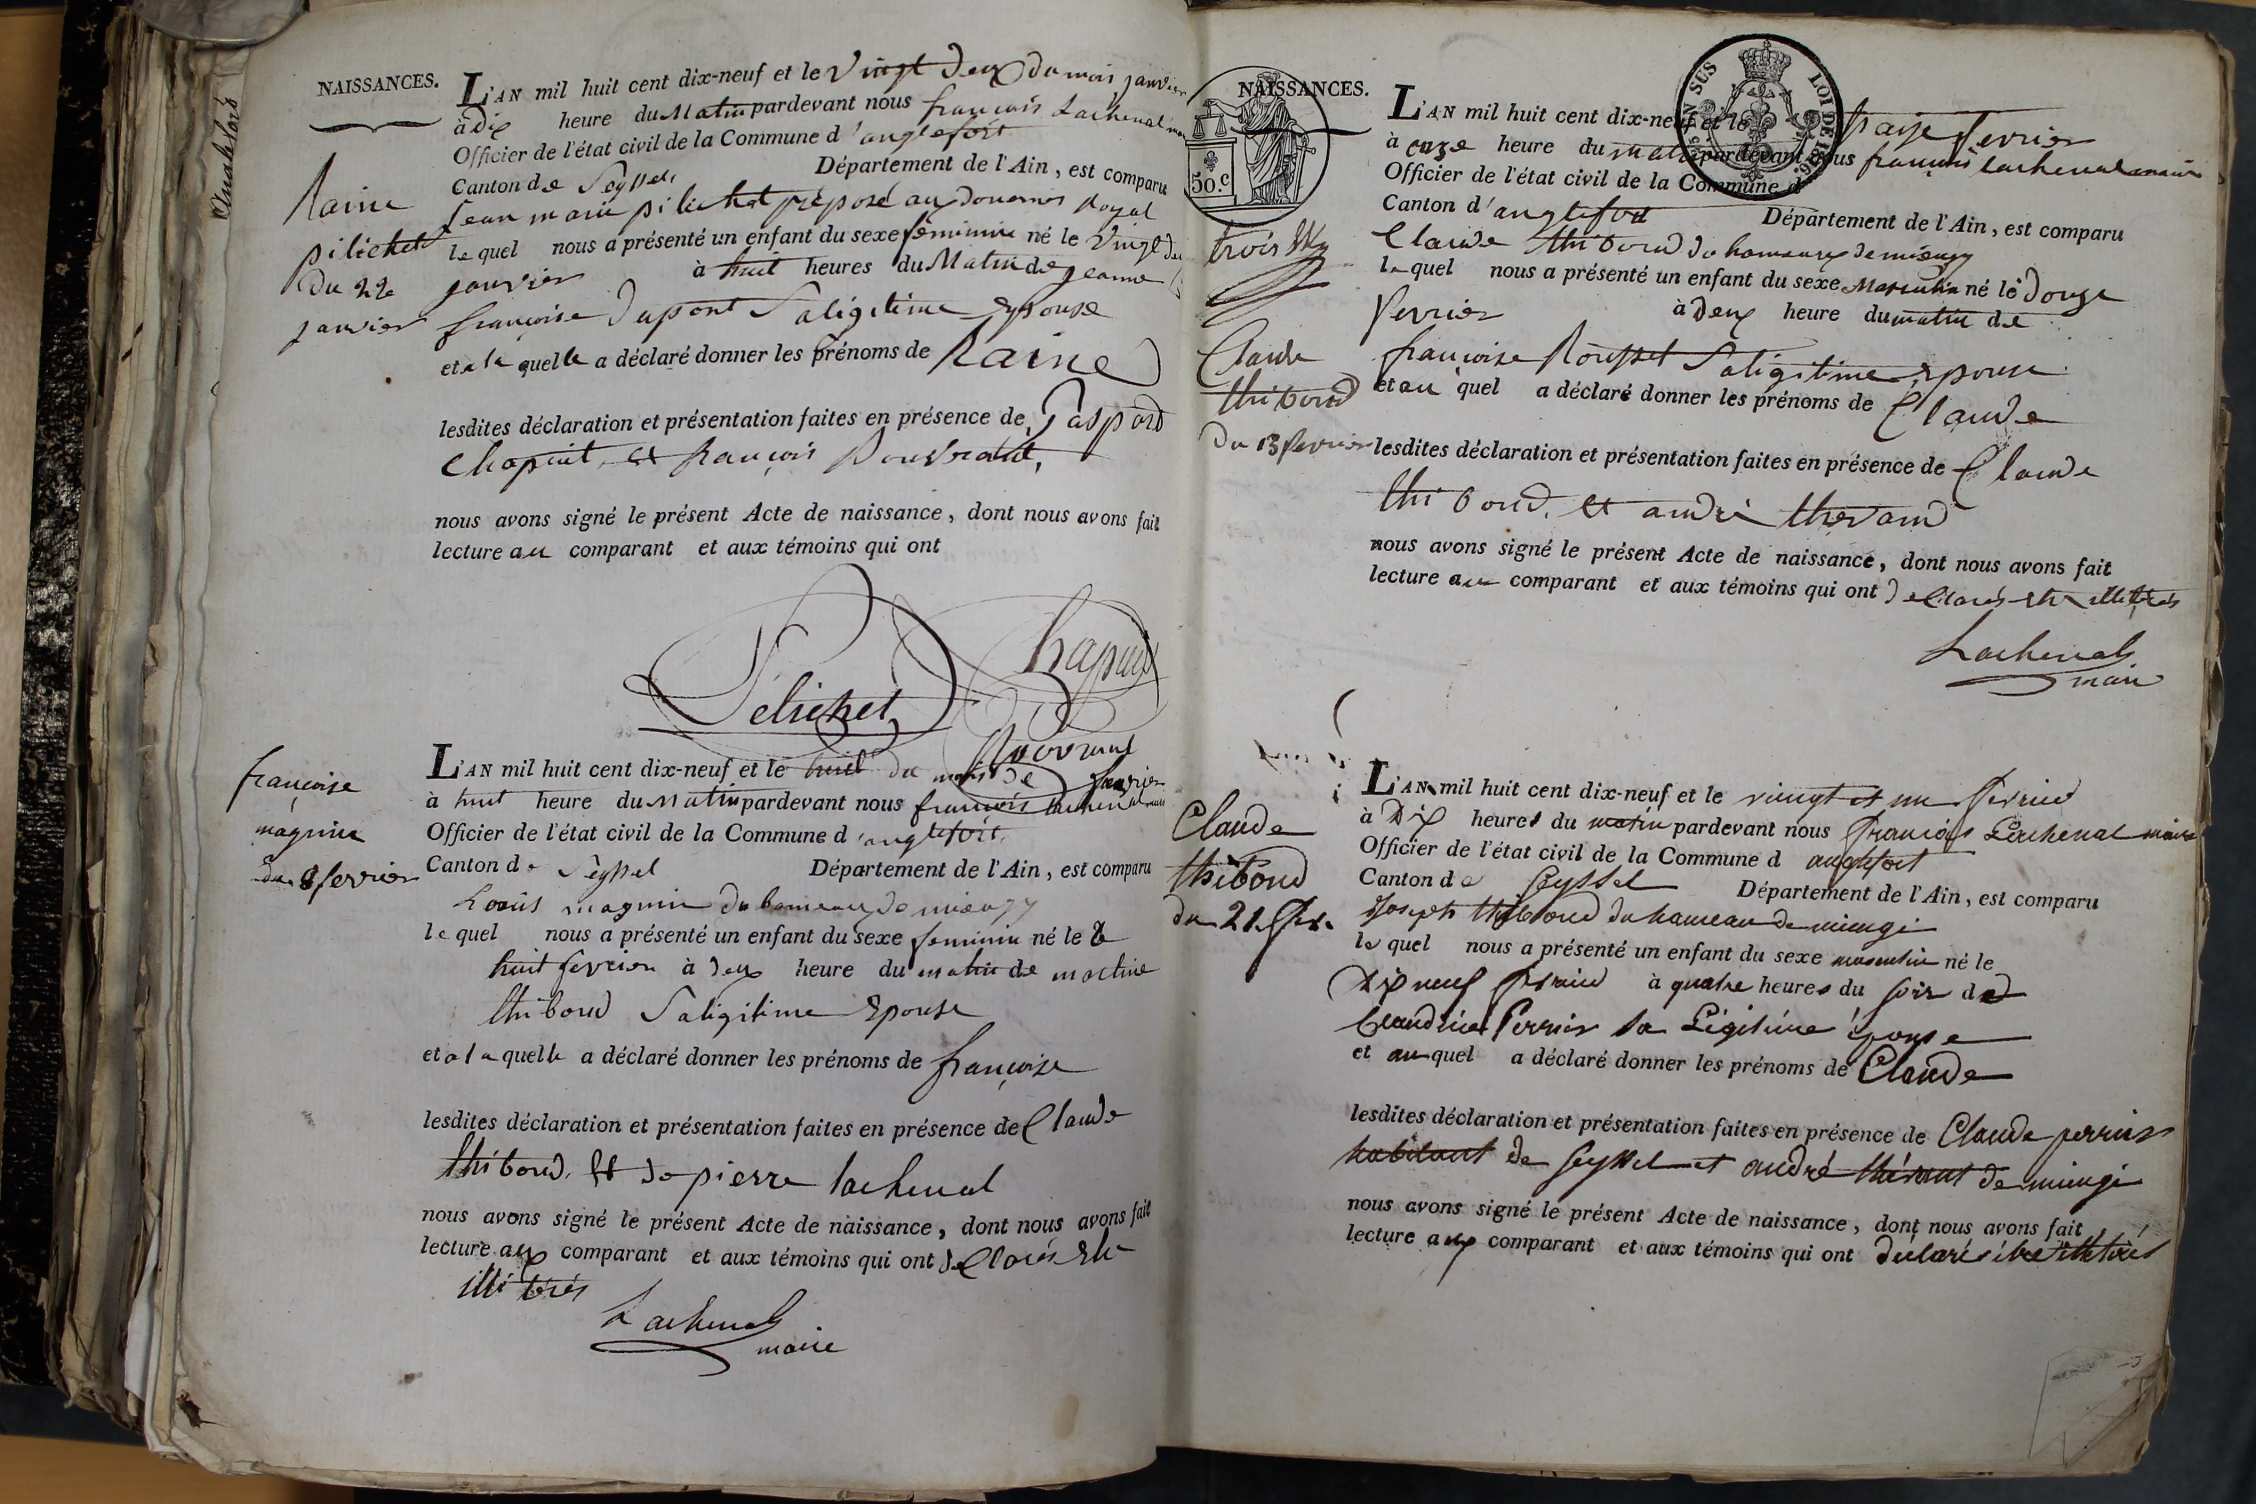 NAISSANCES.
L'AN mil huit cent dix-neuf et le Vingt Deux du mois janvier
à Dix heure du Matin pardevant nous françois Lachenal
Officier de l'état civil de la Commune d'anglefort
Canton de Seyssel, Département de l'Ain, est comparu
Jean marie pilichet préposé aux Douanes Royal
lequel nous a présenté un enfant du sexe feminin né le Vingt deux
janvier à huit heures du Matin de jeanne
françoise Dupont Saligitime Epouse
et a la quelle a déclaré donner les prénoms de Raine
lesdites déclaration et présentation faites en présence de Gaspard
Chapuit, et françois
nous avons signé le présent Acte de naissance, dont nous avons fait
lecture au comparant et aux témoins qui ont
Raine
pilichet
Du 22e
janvier
Pelichet
Chapuis
L'AN mil huit cent dix-neuf et le huit du mois de fevrier
à huit heure du Matin pardevant nous francois lachenal maire
Officier de l'état civil de la Commune d'anglefort,
Canton de Seyssel Département de l'Ain, est comparu
Louis magnin du hameau de mieugy
lequel nous a présenté un enfant du sexe feminin né le
huit fevrier à deux heure du matin de martine
thiboud Saligitime Epouse
et a la quelle a déclaré donner les prénoms de françoise
lesdites déclaration et présentation faites en présence de Claude
thiboud, et de pierre lachenal
nous avons signé le présent Acte de naissance, dont nous avons fait
lecture aux comparant et aux témoins qui ont declarés etre
illitérés
Lachenal
maire
françoise
magnin
du 8 fevrier
NAISSANCES.
50.C
SUS
LOI DE 1816.
trois
L'AN mil huit cent dix-neuf et le traize fevrier
à onze heure du matin pardevant nous françois lachenal maire
Officier de l'état civil de la Commune d
Canton d'anglefort Département de l'Ain, est comparu
Claude thiboud du hameaux de mieugy
lequel nous a présenté un enfant du sexe Masculin né le douze
fevrier à deux heure du matin de
françoise Rousset Saligitime epouse
et au quel a déclaré donner les prénoms de Claude
lesdites déclaration et présentation faites en présence de Claude
thiboud, et andré thevand
nous avons signé le présent Acte de naissance, dont nous avons fait
lecture au comparant et aux témoins qui ont declarés etre illitérés
Lachenal
maire
Claude
thiboud
Du 13 fevrier
L'AN mil huit cent dix-neuf et le vingt et un fevrier
à Dix heures du matin pardevant nous françois Lachenal maire
Officier de l'état civil de la Commune d anglefort
Canton de Seyssel Département de l'Ain, est comparu
Joseph thiboud du hameau de mieugi
lequel nous a présenté un enfant du sexe masculin né le
Dix neuf fevrier à quatre heures du soir de
Claudine Perrier sa Légitime épouse
et au quel a déclaré donner les prénoms de Claude
lesdites déclaration et présentation faites en présence de Claude perrier
habitant de Seyssel et andré thévant de mieugi
nous avons signé le présent Acte de naissance, dont nous avons fait
lecture aux comparant et aux témoins qui ont déclarés être illetérés
Claude
thiboud
du 21